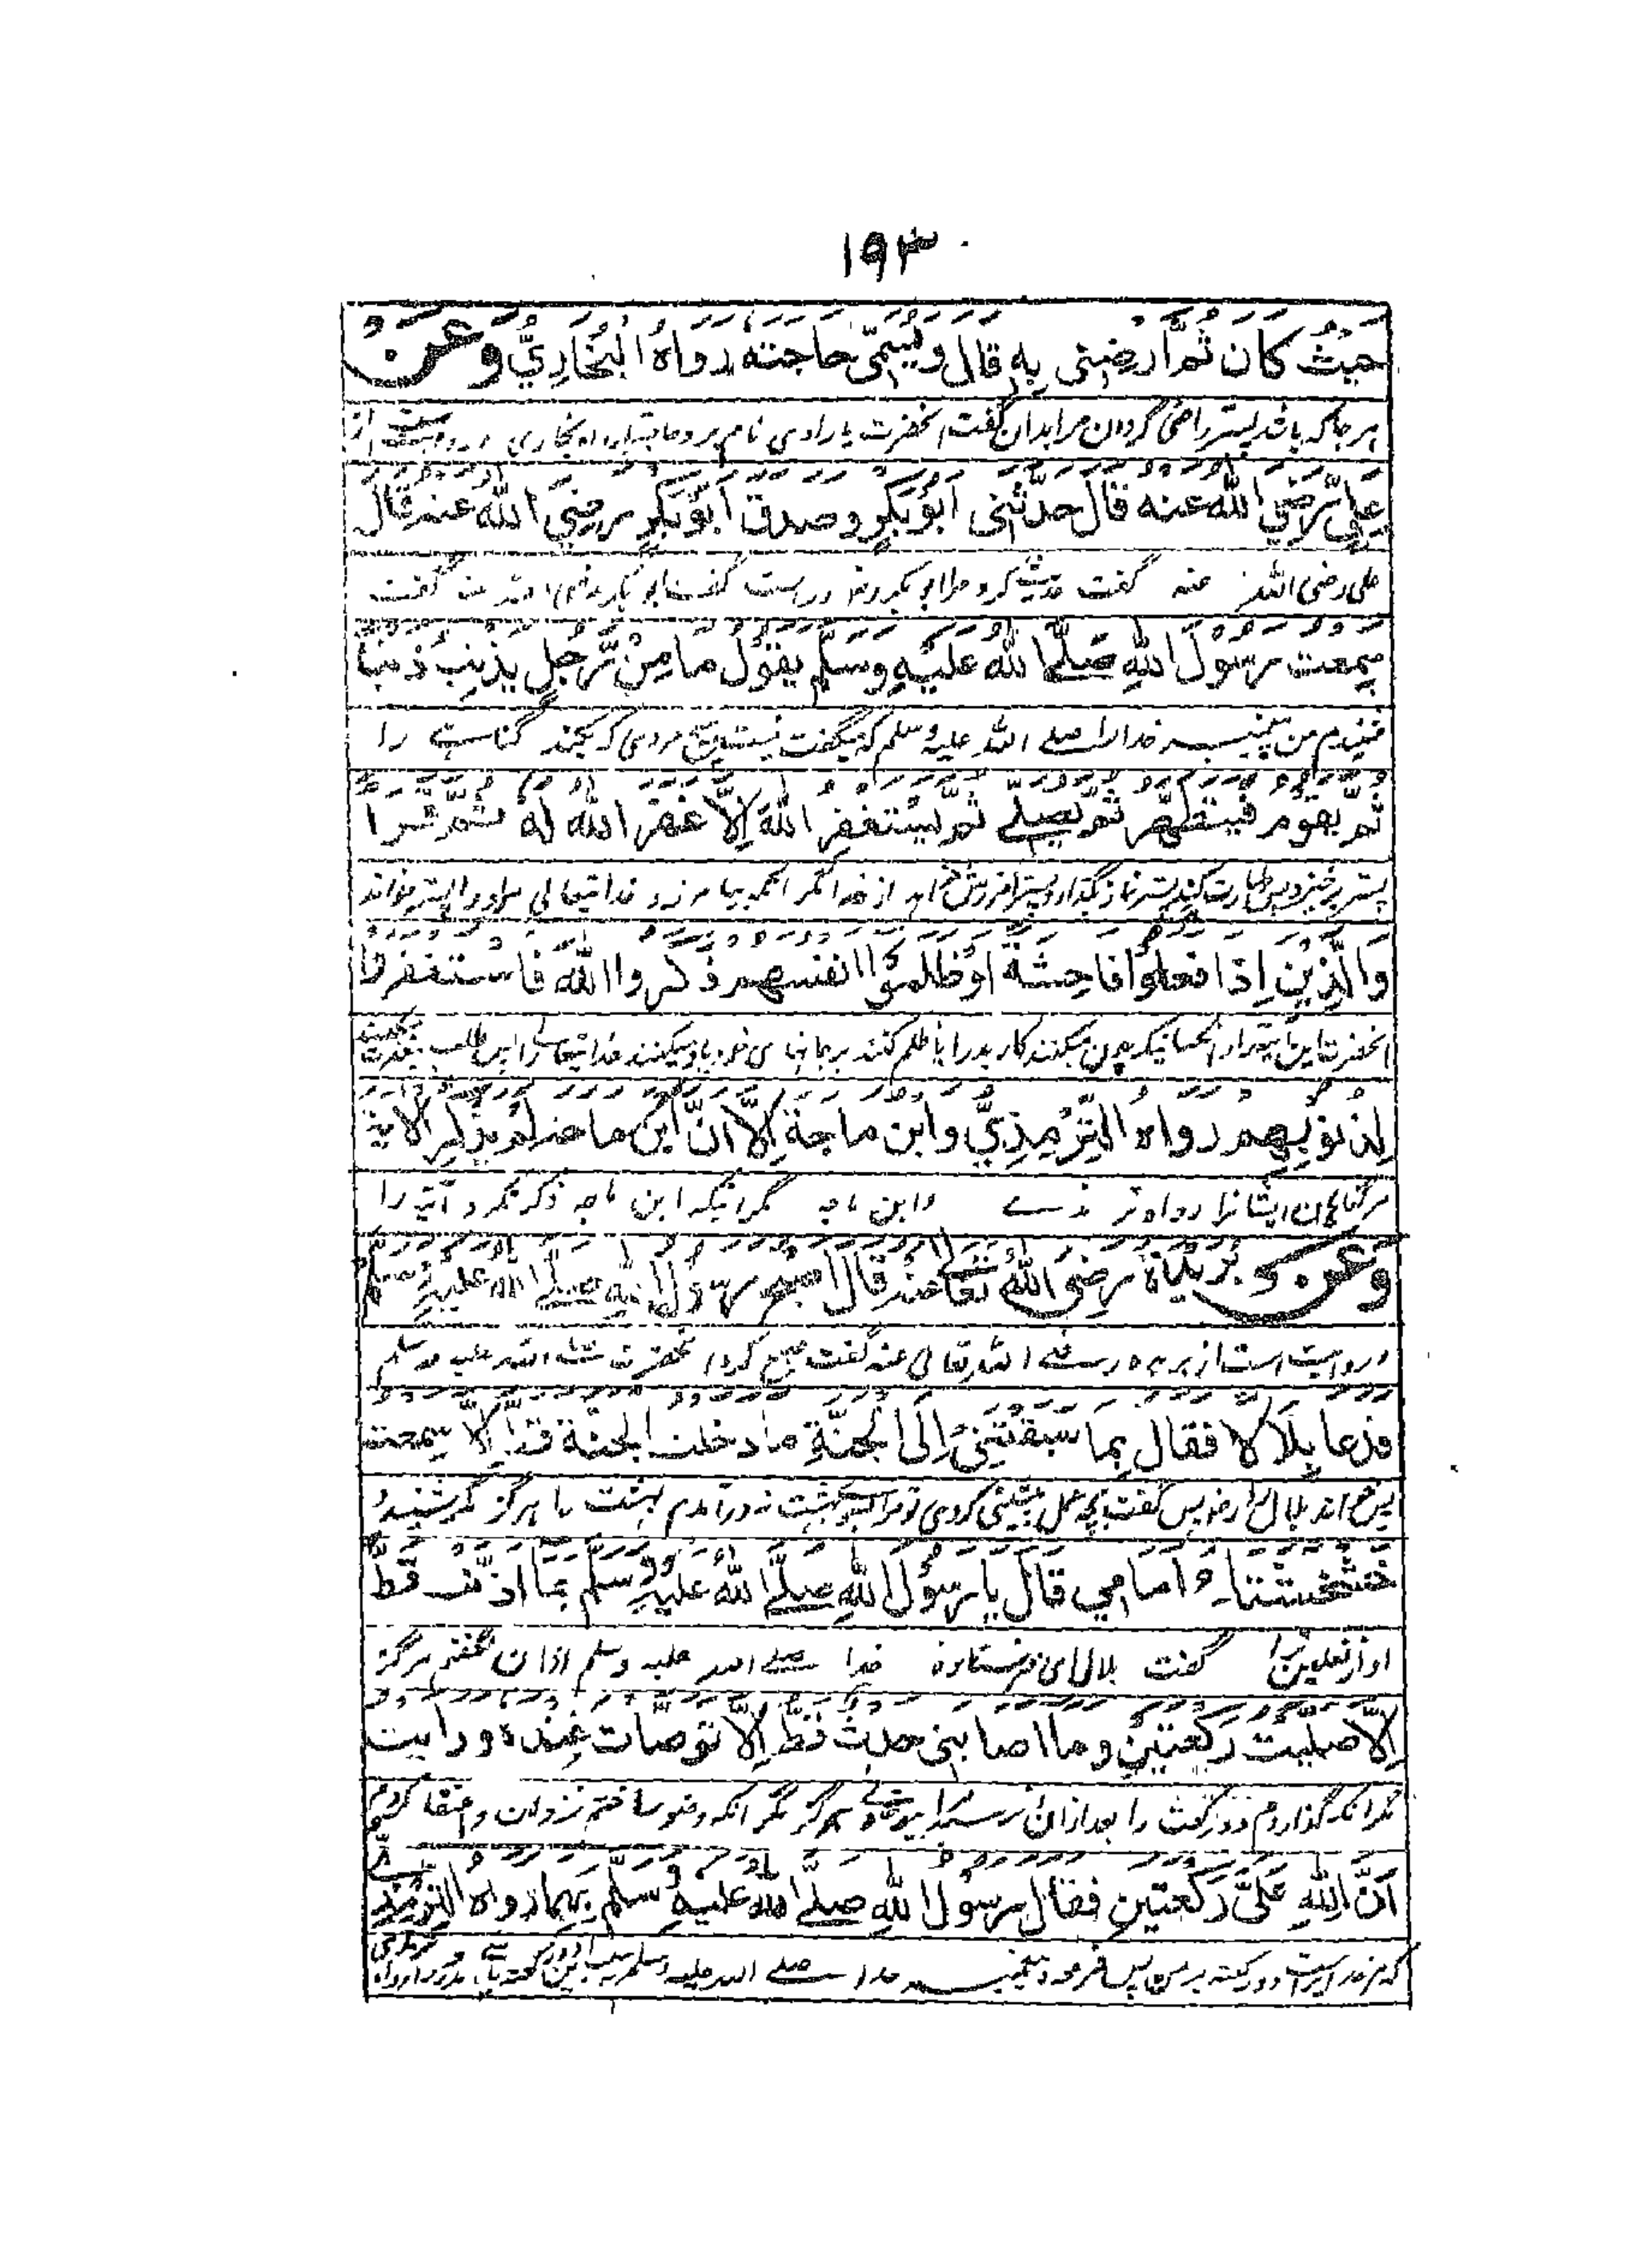 ۱۹۳
حَيْثُ كَانَ ثُمَّ اَرْضِنِى بِهِ قَالَ وَيُسَمِّى حاجته رواهُ الْبُخَارِيُّ وَعَنْ
هر جا که باشد پستر راضی گردان مرا بدان گفت آنحضرت یا راوی نام برد حاجت رواه بخاری و روایت است از
عَلِيٍّ رَّضِيَ اللهُ عنه قَالَ حَدَّثَنِى اَبُوْبَكْرٍ وصدق اَبُوْبَكْرٍ رضِيَ اللهُ عنه قَالَ
علی رضی الله عنه گفت حدیث کرد مرا ابو بکر و راست گفت ابو بکر رضی الله عنه گفت
سمِعت رسُوْلَ اللهِ صَلَّى اللهُ عَلَيْهِ وسَلَّم يقوْلُ مَا مِنْ رَّجُلٍ يذْنِبُ ذنبًا
شنیدم من پیغمبر خدا را صلے الله علیه وسلم که میگفت نیست هیچ مردی که بکند گناہے را
ثُمَّ يقوْمُ فيتطهَّر ثمَّ يصلِّے ثمَّ يَسْتغفِرُ اللهَ اِلَّا غفَرَ اللهُ لهُ ثمَّ قرَا
پستر برخیزد پس طهارت کند پستر نماز بگذارد پستر آمرزش خواهد از خدا مگر آنکه بیامرزد خدا تیعالی مر او را پستر بخواند
وَالَّذِيْنَ اِذَا فعلوْا فاحِشَةً اَوْ ظلموْا انفسهم ذكروا اللهَ فاستغفروا
لِذنوْبِهِم رواه التِّرْمِذِيُّ وابن ماجة اِلَّا اَنَّ ابْن ماجه لم يذكرِ الاية
مر گناهان ایشانرا رواه ترمذے وابن ماجه مگر آنیکه ابن ماجه ذکر نکرد آیة را
وعن بُرَيْدَةَ رضِىَ اللهُ تعالٰى عنه قَالَ اصبح رسوْلُ اللهِ صلے الله عليهِ وسلم
و روایت است از بریده رضے الله تعالی عنه گفت صبح کرد آنحضرت صلے الله علیه وسلم
فدعا بِلَالًا فقال بِمَا سَبقْتَنِىْ اِلَى الْجَنَّةِ ما دخلت الجنّة قطُّ اِلَّا سَمِعت
پس خواند بلال را رض پس گفت بچه عمل پیشی کردی تو مرا بسوی بهشت نه در آمدم بهشت را هرگز مگر شنیدم
خشخشتك اَمَامِى قَالَ يَا رسُوْلَ اللهِ صَلَّى اللهُ عَليهِ وسلّم مَا اذَّنت قَطُّ
آواز نعلین ترا گفت بلال ای فرستاده خدا صلے الله علیه وسلم اذان نگفتم هرگز
اِلَّا صَلّيت رَكْعتيْنِ وما اصابنِى حدث قطُّ اِلَّا توضات عِنده ورايت
مگر آنکه گذاردم دو رکعت را بعد ازان و نرسید مرا بیوضوئی هرگز مگر آنکه وضو ساختم نزد آن و اعتقاد کردم
اَنَّ لِلّٰهِ عَلَىَّ رَكْعتَيْنِ فقال رسُوْلُ اللهِ صلے اللهُ عليهِ وسلم بِهِمَا رواه التِّرْمِذِىُّ
که مر خدا راست دو رکعت بر من پس فرمود پیغمبر خدا صلے الله علیه وسلم